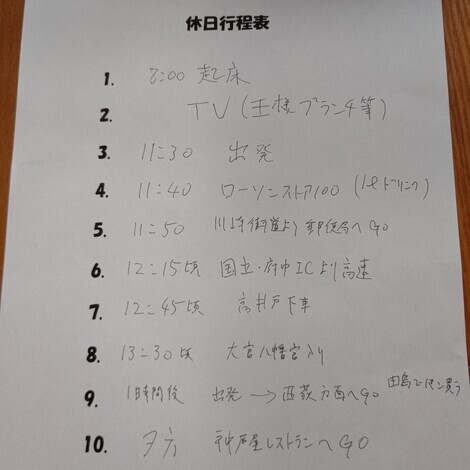 休日行程表
1. 8:00 起床
2. TV (王様ブランチ等)
3. 11:30 出発
4. 11:40 ローソンストア100 (1ℓドリンク)
5. 11:50 川崎街道より 郵便局へGO
6. 12:15頃 国立・府中ICより高速
7. 12:45頃 高井戸下車
8. 13:30頃 大宮八幡宮入り
9. 1時間後 出発 → 西荻方面へGO
10. 夕方 神戸屋レストランへGO